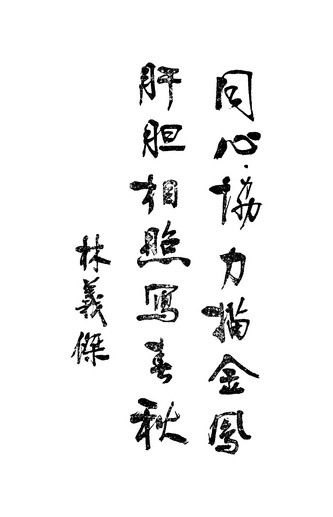 同心協力描金鳳
肝胆相照寫春秋
林義傑